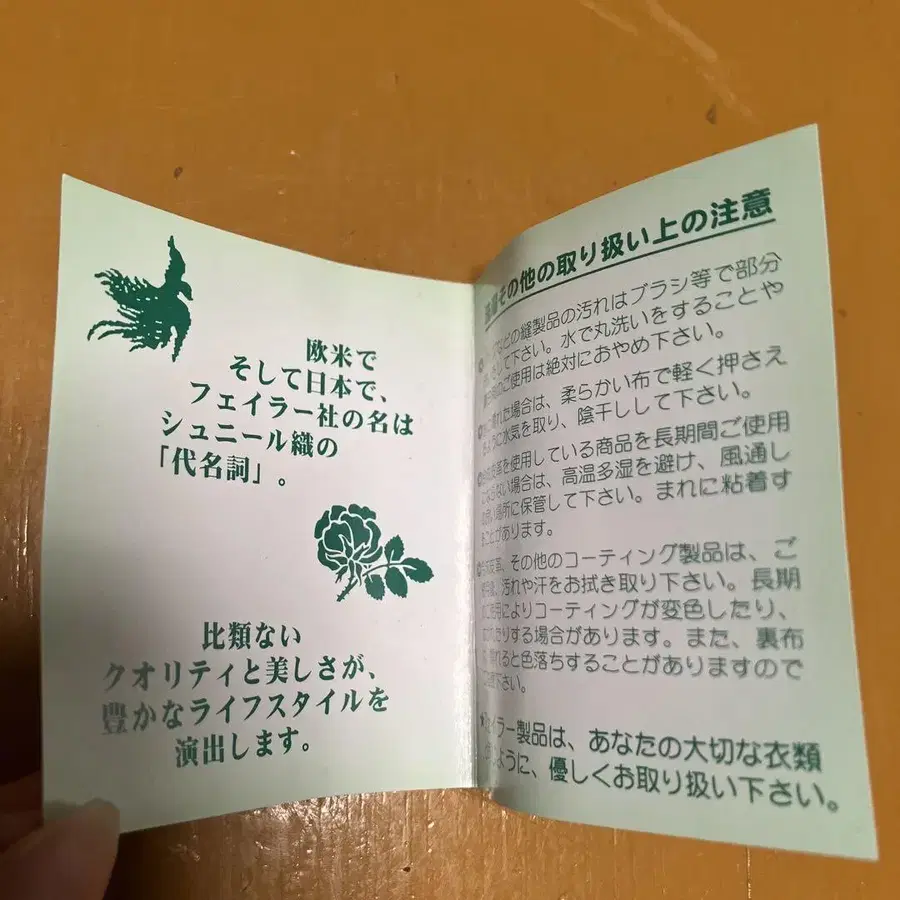 欧米で
そして日本で、
フェイラー社の名は
シュニール織の
「代名詞」。
比類ない
クオリティと美しさが、
豊かなライフスタイルを
演出します。
その他の取り扱い上の注意
などの縫製品の汚れはブラシ等で部分
して下さい。水で丸洗いをすることや
ご使用は絶対におやめ下さい。
れた場合は、柔らかい布で軽く押さえ
ように水気を取り、陰干しして下さい。
皮革を使用している商品を長期間ご使用
ならない場合は、高温多湿を避け、風通し
場所に保管して下さい。まれに粘着す
ことがあります。
皮革、その他のコーティング製品は、ご
汚れや汗をお拭き取り下さい。長期
使用によりコーティングが変色したり、
たりする場合があります。また、裏布
れると色落ちすることがありますので
下さい。
イラー製品は、あなたの大切な衣類
ように、優しくお取り扱い下さい。